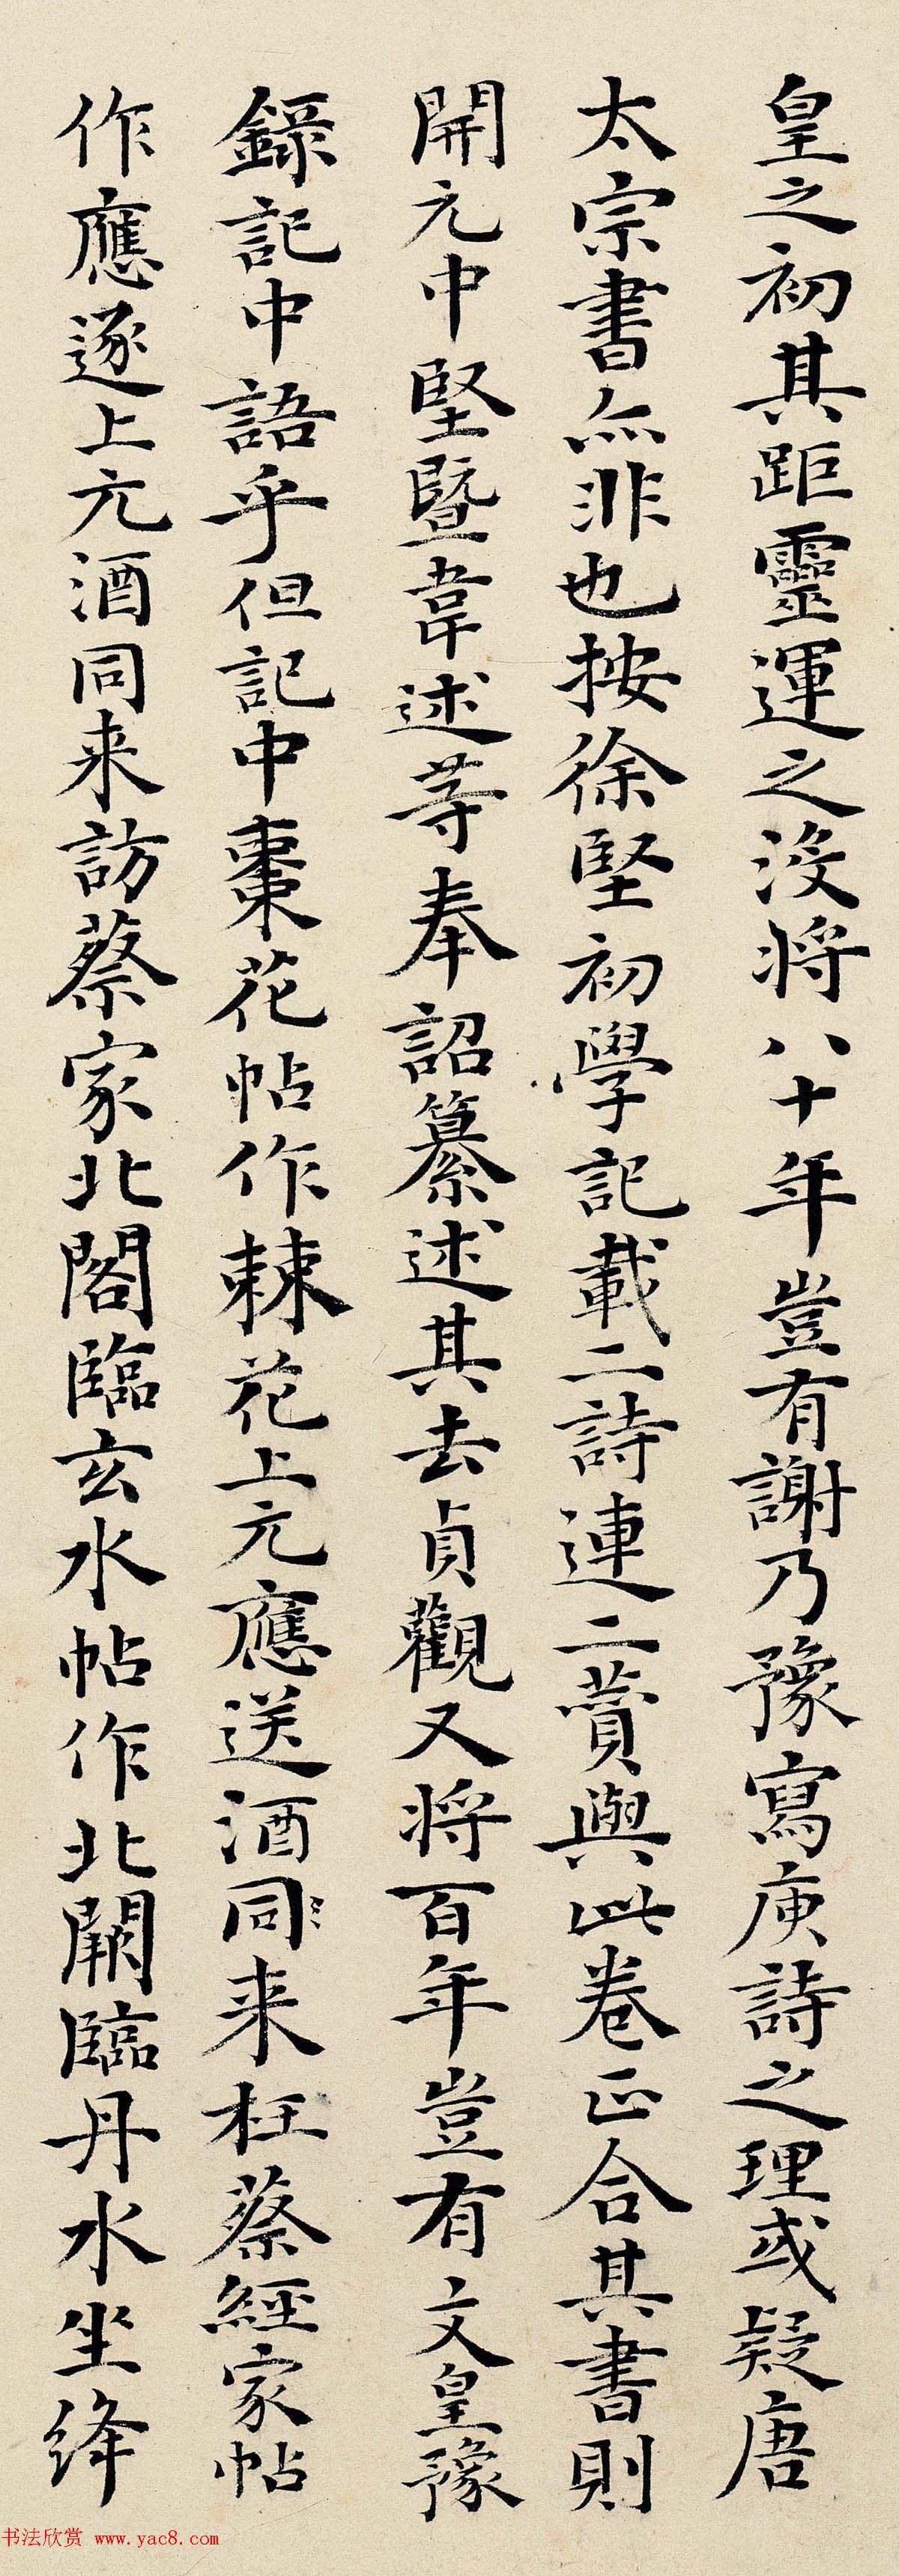 皇之初其距靈運之没将八十年豈有謝乃豫寫庾詩之理或疑唐
太宗書亦非也按徐堅初學記載二詩連二賛與此卷正合其書則
開元中堅曁韋述等奉詔纂述其去貞觀又将百年豈有文皇豫
録記中語乎但記中棗花帖作棘花上元應送酒同〻来枉蔡經家帖
作應逐上元酒同来訪蔡家北閣臨玄水帖作北闕臨丹水坐絳
书法欣赏 www.yac8.com